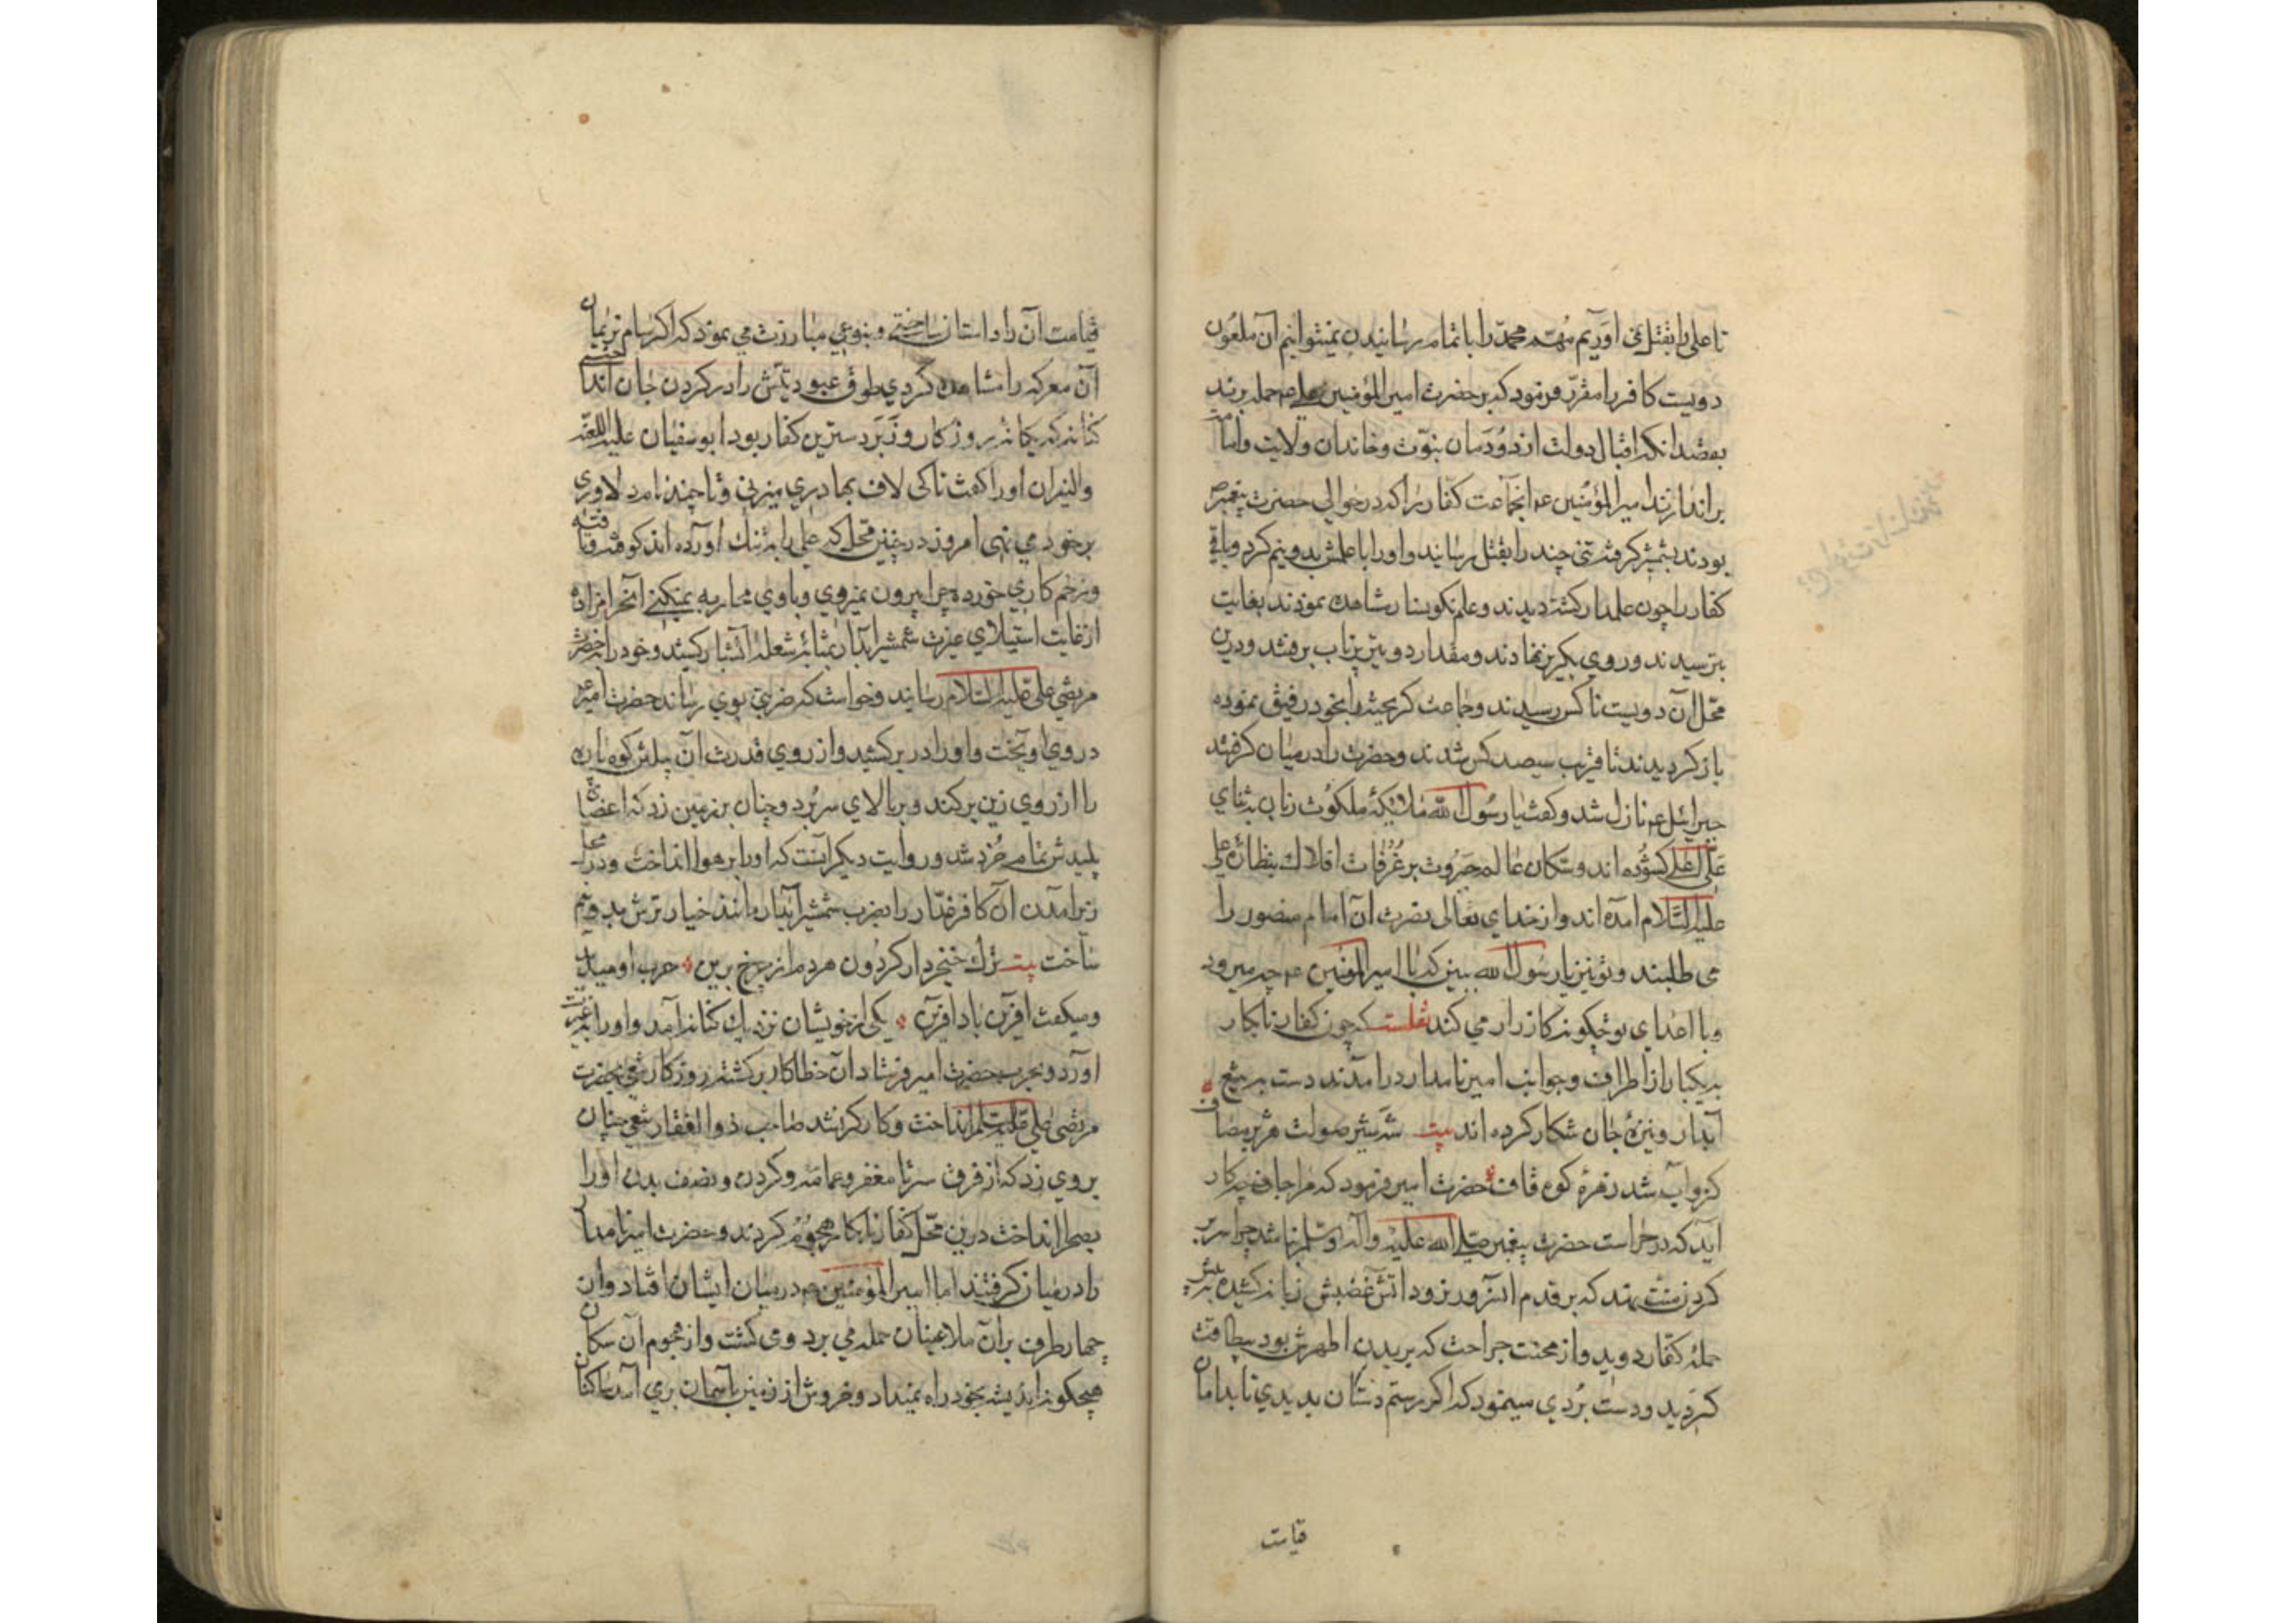 تا علی را بقتل نمی آوریم مهم محمد را باتمام رسانیدن نمیتوانیم آن ملعون
دویست کافر را مقرر فرمود که بر حضرت امیر المؤمنین علی عم حمله برند
بقصد انکه اقبال دولت از دودمان نبوت و خاندان ولایت وامامت
براندازند امیر المؤمنین عم انجماعت کفار را که در حوالی حضرت پیغمبر ص
بودند بشمشیر کرفته تنی چند را بقتل رسانید و اورا با علمش بدو نیم کرد وباقی
کفار را چون علمدار کشته دیدند وعلم نکونسار مشاهده نمودند بغایت
بترسیدند وروی بکریز نهادند ومقدار دو تیر پرتاب برفتند ودرین
محل آن دویست ناکس رسیدند وجماعت کریخته را بخود رفیق نموده
باز کردیدند تا قریب سیصد کس شدند وحضرت را در میان کرفتند
جبرائیل عم نازل شد وکفت یا رسول الله ملائیکه ملکوت زبان بثنای
علی اعلی کشوده اند وسکان عالم جبروت بر غرفات افلاک بنظاره علی
علیه السلام امده اند واز خدای تعالی نصرت آن امام منصور را
می طلبند وتو نیز یا رسول الله ببین که با امیر المؤمنین عم چه میرود
وبا اعدای تو چکونه کارزار می کند نقلست که چون کفار نابکار
بیکبار از اطراف وجوانب امیر نامدار درامدند دست به تیغ
آبدار ونیزه جان شکار کرده اند بیت شد شیر صولت هژبر مصاف
کزو آب شد زهره کوه قاف حضرت امیر فرمود که مرا جان چه کار
اید که در حراست حضرت پیغمبر صلی الله علیه واله وسلم نباشد چرا سر بر
کردن منت نهد که بر قدم انسرور نرود اتش غضبش زبانه کشیده
حمله کفار دوید واز محنت جراحت که بر بدن اطهرش بود بیطاقت
کردید ودست بردی مینمود که اکر رستم دستان بدیدی تا بدامان
قیامت
قیامت آن را داستان ساختی وبنوعی مبارزت می نمود که اکر سام نریمان
آن معرکه را مشاهده کردی طوق عبودیتش را در کردن جان انداختی
کنانه که یکانه روزکار وزبردسترین کفار بود ابو سفیان علیه اللعنه
والنیران اورا کفت تا کی لاف بهادری میزنی وتا چند نام دلاوری
بر خود می نهی امروز در چنین محل که علی را به تنک آورده اند کوفته وتافته
وزخم کاری خورده چرا بیرون نمیروی وبا وی محاربه نمیکنی آنحرامزاده
از غایت استیلای غیرت شمشیر آبدار بمثابه شعله آتشبار کشید وخود را بحضرت
مرتضی علی علیه السلام رسانید وخواست که ضربتی بوی رساند حضرت امیر عم
در وی آویخت واورا در بر کشید واز روی قدرت آن پیلتن کوه پاره
را از روی زین برکند وبر بالای سر برد وچنان بر زمین زد که اعضای
پلیدش تمام خرد شد وروایت دیکر آنست که اورا بر هوا انداخت ودر محل
زیر آمدن آن کافر غدار را بضرب شمشیر آبدار مانند خیار ترش بدو نیم
ساخت بیت ترک خنجردار کردون هردم از چرخ برین حرب او میدید
ومیکفت آفرین باد آفرین یکی از خویشان نزدیک کنانه آمد واورا بغیرت
آورد وبحرب حضرت امیر فرستاد آن خطاکار برکشته روزکار تیغی بحضرت
مرتضی علی علیه السلم انداخت وکارکر نشد صاحب ذو الفقار تیغی چنان
بر وی زد که از فرق سر تا مغفر وعمامه وکردن ونصف بدن اورا
بصحرا انداخت درین محل کفار نابکار هجوم کردند وحضرت امیر نامدار
را در میان کرفتند اما امیر المؤمنین عم در میان ایشان افتاد واز
چهار طرف بر آن ملاعینان حمله می برد ومی کشت واز هجوم آن سکان
هیچکونه اندیشه بخود راه نمیداد وخروش از زمین باسمان بر می آمد